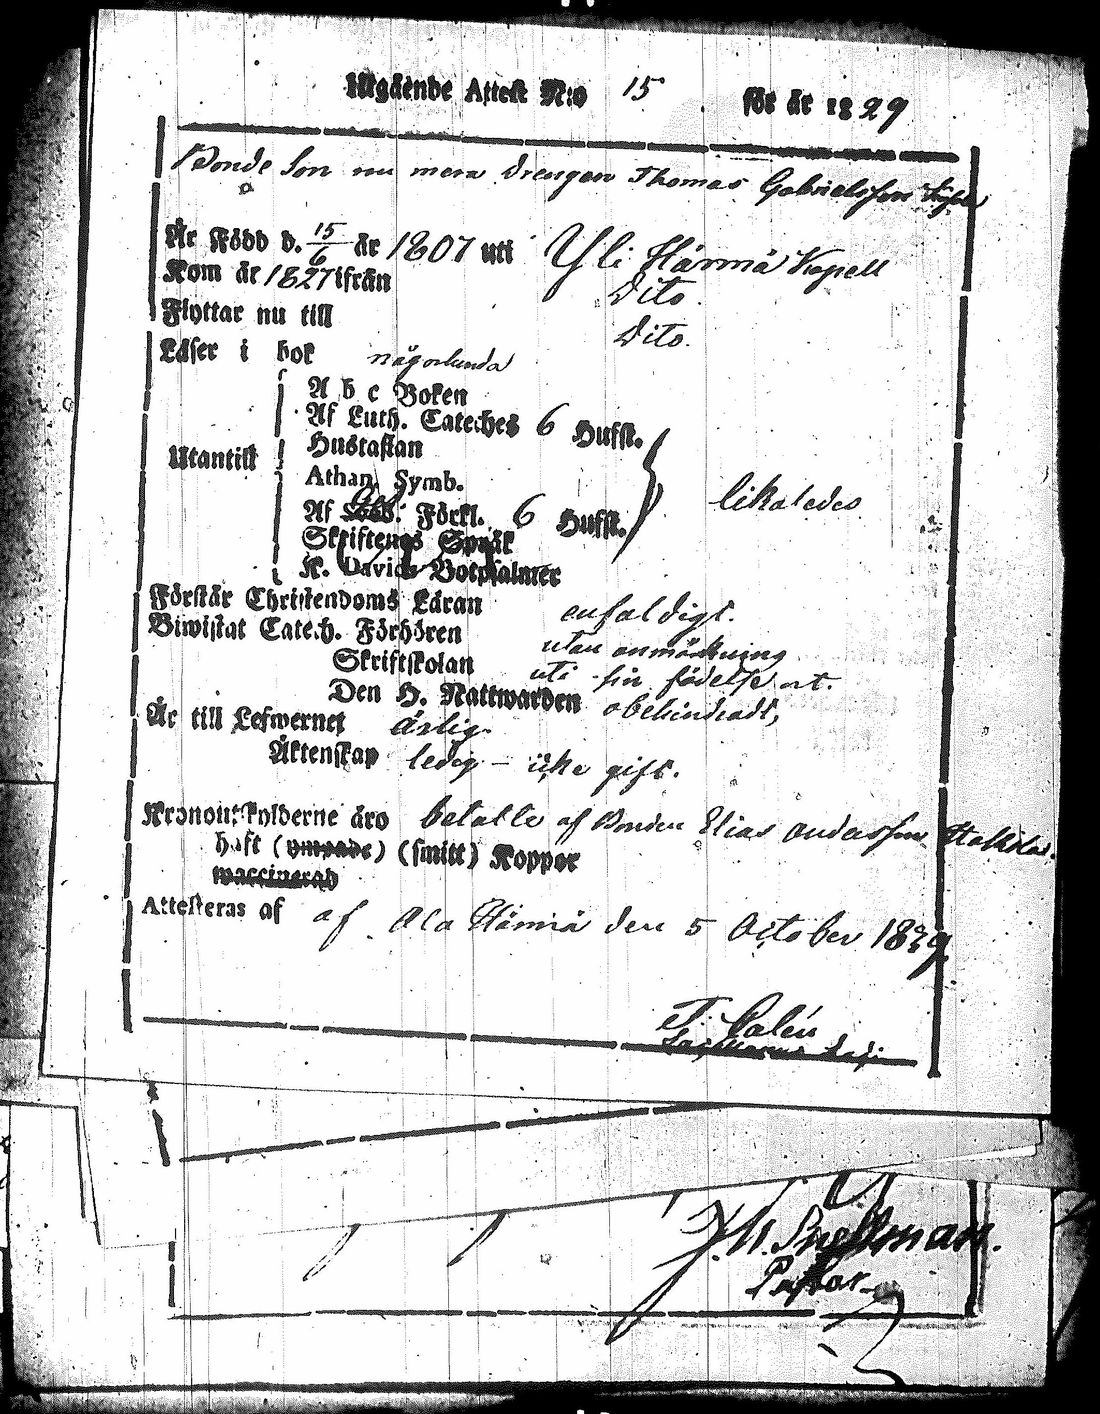 Utgående Attest N:o 15 för år 1829
Bonde Son nu mera Drengen Thomas Gabrielsson
Är Född d. 15/6 år 1807 uti Yli Härmä Kapell
Kom år 1827 ifrån Dito.
Flyttar nu till Dito.
Läser i bok någorlunda
A b c Boken
Af Luth. Cateches 6 Hufst.
Hustaflan
Utantill
Athan. Symb.
likaledes
Af Förkl. 6 Hufst.
Skriftenes Språk
K. Davids Botpsalmer
Förstår Christendoms Läran enfaldigt.
Biwistat Catech. Förhören utan anmärkning
Skriftskolan uti sin födelse ort.
Den H. Nattwarden obehindradt,
Är till Lefwernet ärlig.
Äktenskap ledig – icke gift.
Kronoutskylderne äro betalte af Bonden Elias Andersson
haft (ympade) (smitt) Koppor
waccinerad
Attesteras af af Ala Härmä den 5 October 1829
Calén
Snellman.
Pastor